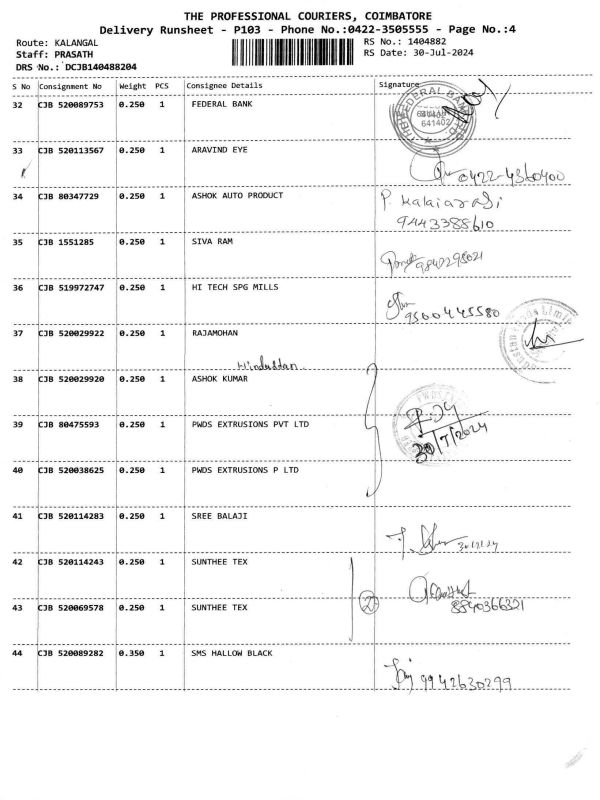 THE PROFESSIONAL COURIERS, COIMBATORE
Delivery Runsheet - P103 - Phone No.:0422-3505555 - Page No.:4
Route: KALANGAL RS No.: 1404882
Staff: PRASATH RS Date: 30-Jul-2024
DRS No.: DCJB140488204
S No Consignment No Weight PCS Consignee Details Signature
32 CJB 520089753 0.250 1 FEDERAL BANK
641402
33 CJB 520113567 0.250 1 ARAVIND EYE
0422-4360400
34 CJB 80347729 0.250 1 ASHOK AUTO PRODUCT P. Kalaiarasi
9443388610
35 CJB 1551285 0.250 1 SIVA RAM
9842295021
36 CJB 519972747 0.250 1 HI TECH SPG MILLS
9500445580
37 CJB 520029922 0.250 1 RAJAMOHAN
Hindustan
38 CJB 520029920 0.250 1 ASHOK KUMAR
39 CJB 80475593 0.250 1 PWDS EXTRUSIONS PVT LTD
30/7/2024
40 CJB 520038625 0.250 1 PWDS EXTRUSIONS P LTD
41 CJB 520114283 0.250 1 SREE BALAJI
42 CJB 520114243 0.250 1 SUNTHEE TEX
2
43 CJB 520069578 0.250 1 SUNTHEE TEX 8840366321
44 CJB 520089282 0.350 1 SMS HALLOW BLACK
9942630299